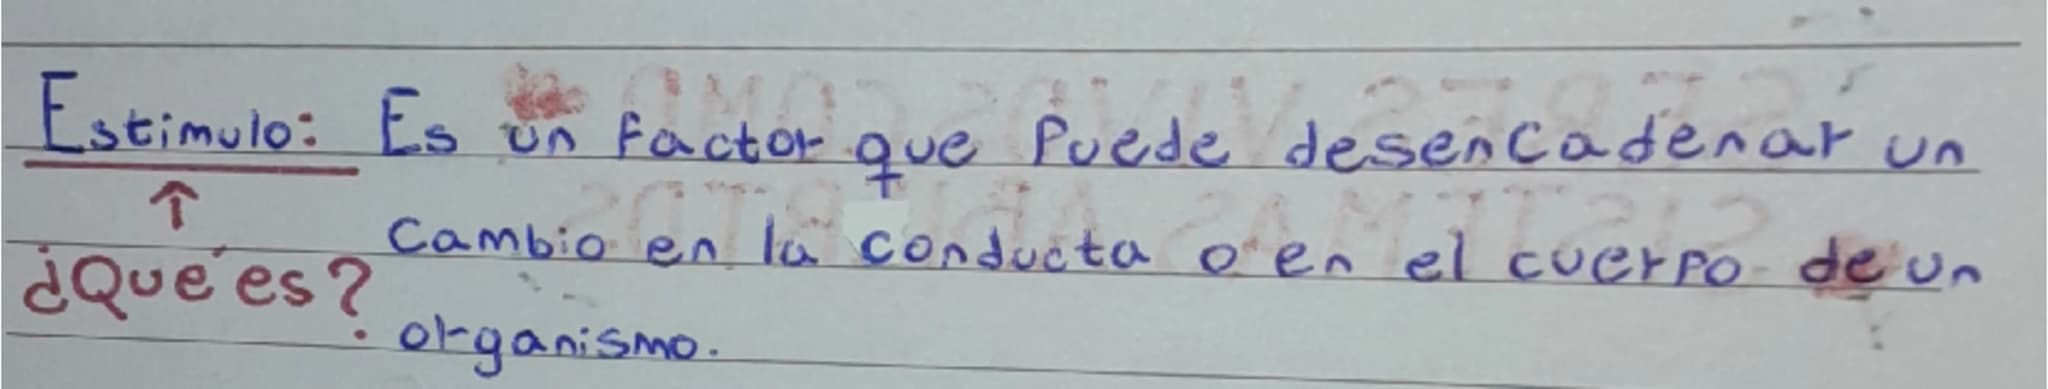 Estimulo: Es un factor que Puede desencadenar un
cambio en la conducta o en el cuerpo de un
¿Qué es? organismo.